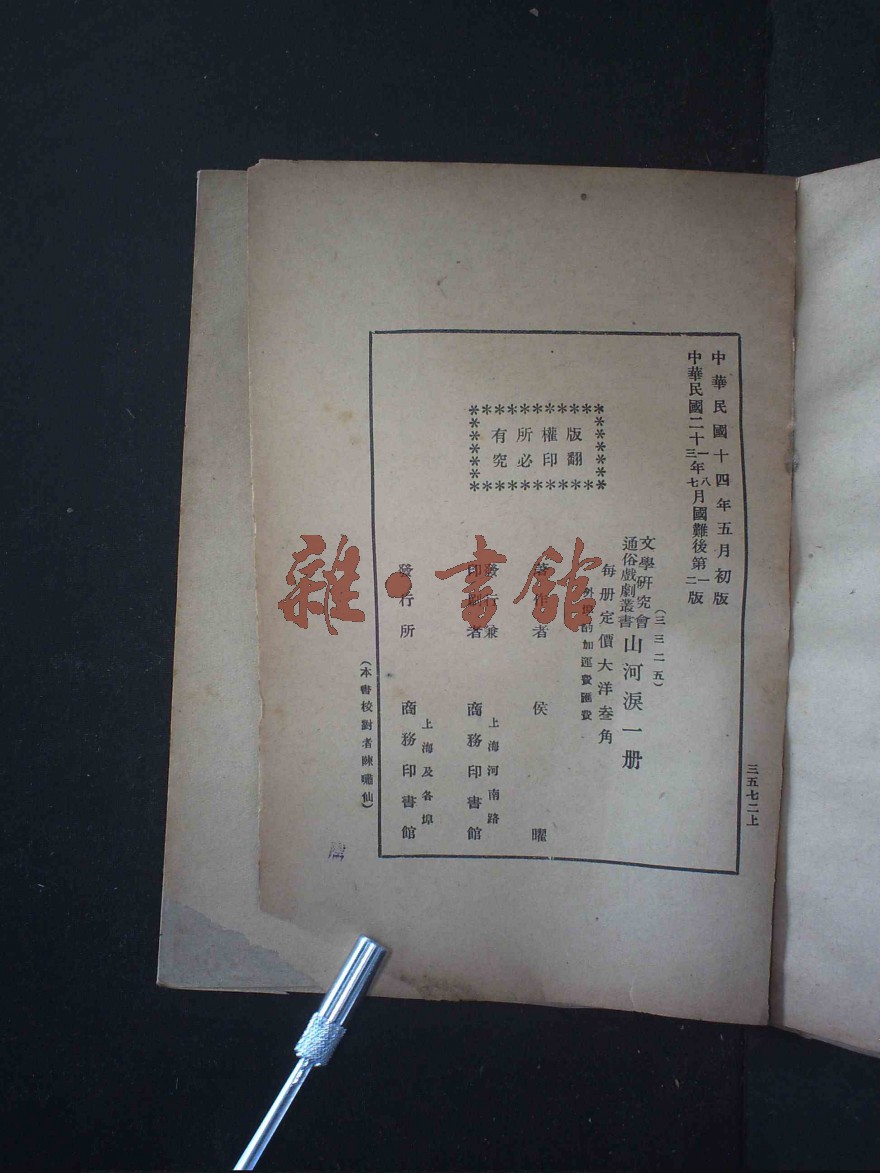 中華民國十四年五月初版
中華民國二十一年八月國難後第一版
三年七 二
版權所有
翻印必究
(三三二五)
文學研究會
通俗戲劇叢書
山河淚一册
每册定價大洋叁角
外埠酌加運費匯費
著作者 侯曜
發行兼
印刷者
上海河南路
商務印書館
發行所
上海及各埠
商務印書館
(本書校對者陳嘯仙)
三五七二上
雜·書館